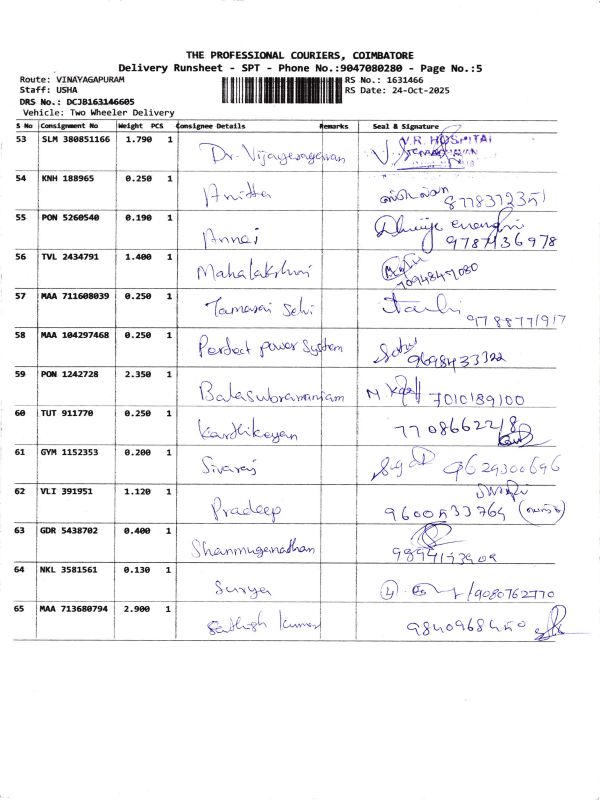 THE PROFESSIONAL COURIERS, COIMBATORE
Delivery Runsheet - SPT - Phone No.:9047080280 - Page No.:5
Route: VINAYAGAPURAM RS No.: 1631466
Staff: USHA RS Date: 24-Oct-2025
DRS No.: DCJB163146605
Vehicle: Two Wheeler Delivery
S No Consignment No Weight PCS Consignee Details Remarks Seal & Signature
53 SLM 380851166 1.790 1 Dr. Vijayaragavan V.R. HOSPITAL
54 KNH 188965 0.250 1 Anitha 8778372351
55 PON 5260540 0.190 1 Annai 9787436978
56 TVL 2434791 1.400 1 Mahalakshmi 7094849080
57 MAA 711608039 0.250 1 Tamarai Selvi 9788771917
58 MAA 104297468 0.250 1 Perfect power System 9698433322
59 PON 1242728 2.350 1 Balasubramaniam 7010189100
60 TUT 911770 0.250 1 Karthikeyan 7708662218
61 GYM 1152353 0.200 1 Sivaraj 9629300696
62 VLI 391951 1.120 1 Pradeep 9600533764
63 GDR 5438702 0.400 1 Shanmuganathan
64 NKL 3581561 0.130 1 Surya 9080762770
65 MAA 713680794 2.900 1 Sathish kumar 9840968450